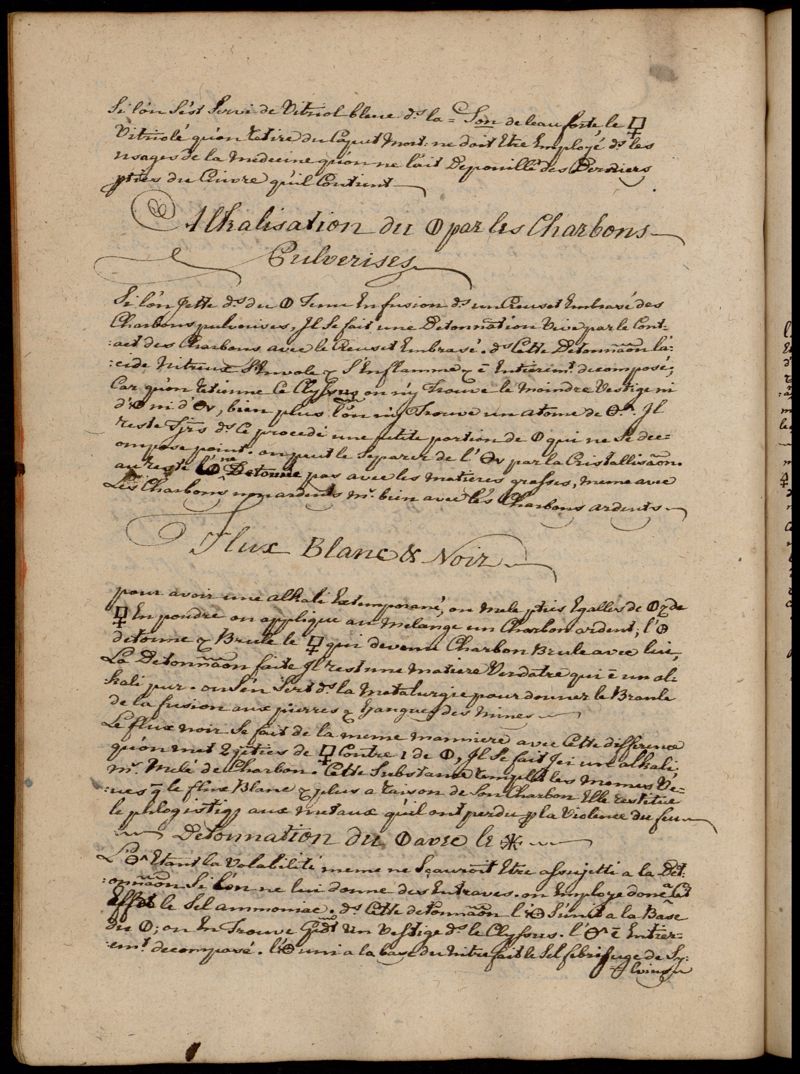 Si l'on s'est Servi de Vitriol bleue ds. la = Son de leau forte, le 🜿
Vitriolé qu'on retire du Caput Mort: ne doit Etre Employé ds. les
usages de la medecine qu'on ne l'ait Depouillé des Derniers
pties du Cuivre qu'il Contient
Alkalisation du 🜕 par les Charbons
Pulverises
Si l'on jette ds. du 🜕 Tenu En fusion ds. un Creuset Embrasé des
Charbons pulverises, Jl se fait une Detonnation Vive par le Cont-
:act des Charbons avec le Creuset Embrasé. ds. Cette Detonnãon l'a:
:cide Nitreux S'Envole & S'Enflamme & ē Entierimt. decomposé;
Car qu'on retienne Ce Clyssus on n'y Trouve le moindre Vestige ni
d'🜕 ni d', bien plus l'on n'y Trouve un atome de Jl
reste Tjrs ds. Ce procedé une petite portion de 🜕 qui ne Se dec-
ompose point. on peut le Separer de l' par la Cristallisãon.
au reste le 🜕 ne Detonne pas avec les matieres grasses, meme avec
Les Charbons non ardents mr. bien avec les Charbons ardents
Flux Blanc & Noir
pour avoir une alkali Extemporané, on mele pties Egalles de 🜕 & de
🜿 En poudre on applique au melange un Charbon ardent; l'🜕
detonne & Brule le 🜿 qui devenu Charbon Brule avec lui,
La Detonnãon faite Jl rest une matiere Verdatre qui ē un al-
kali pur. on S'en Sert ds. la metalurgie pour donner le Branle
de la fusion aux pierres & Gangues des mines
Le flux noir Se fait de la meme manniere avec Cette difference
qu'on met 2 pties de 🜿 Contre 1 de 🜕, Jl Se fait Jci une alkali,
mr. Melé de Charbon. Cette Substance remplit les memes Ve-
:ues q le flux Blanc & plus a raison de Son Charbon Elle restitue
le phlogistiq aux metaux qu'il ont perdu p la Violence du feu
Detonnation du 🜕 avec le 🜹
L' Etant la Volabilité meme ne Sçauroit Etre assujetti a la Det-
:onnãon Si l'on ne lui donne des Entraves. on Employe donc a Cet
Effet le Sel ammoniac. ds. Cette detonnãon l' S'unit a la Base
du 🜕; on En Trouve Vestige ds. le Clyssus. l' ē Entier-
:emt. decomposé. l' uni a la base du nitre fait le Sel febrifuge de Sy-
:lvius